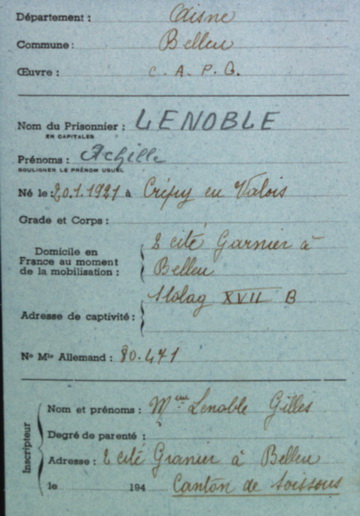 Département : Aisne
Commune : Belleu
Œuvre : C. A. P. G.
Nom du Prisonnier : LENOBLE
EN CAPITALES
Prénoms : Achille
SOULIGNER LE PRÉNOM USUEL
Né le : 20.1.1921 à Crépy en Valois
Grade et Corps :
Domicile en France au moment de la mobilisation : 2 cité Garnier à
Belleu
Adresse de captivité : Stalag XVII B
No Mle Allemand : 80.471
Inscripteur
Nom et prénoms : Mme Lenoble Gilles
Degré de parenté :
Adresse : 2 cité Granier à Belleu
le 194 Canton de Soissons